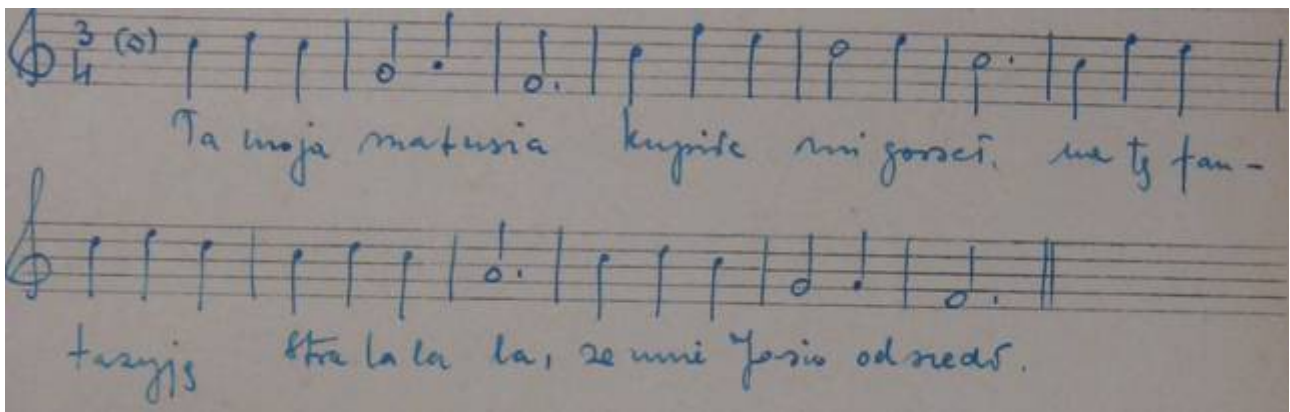 3/4 (o)
Ta moja matusia kupiła mi gorset. na tę fan-
tazyję Stra la la la, ze mnie Josio odszedł.